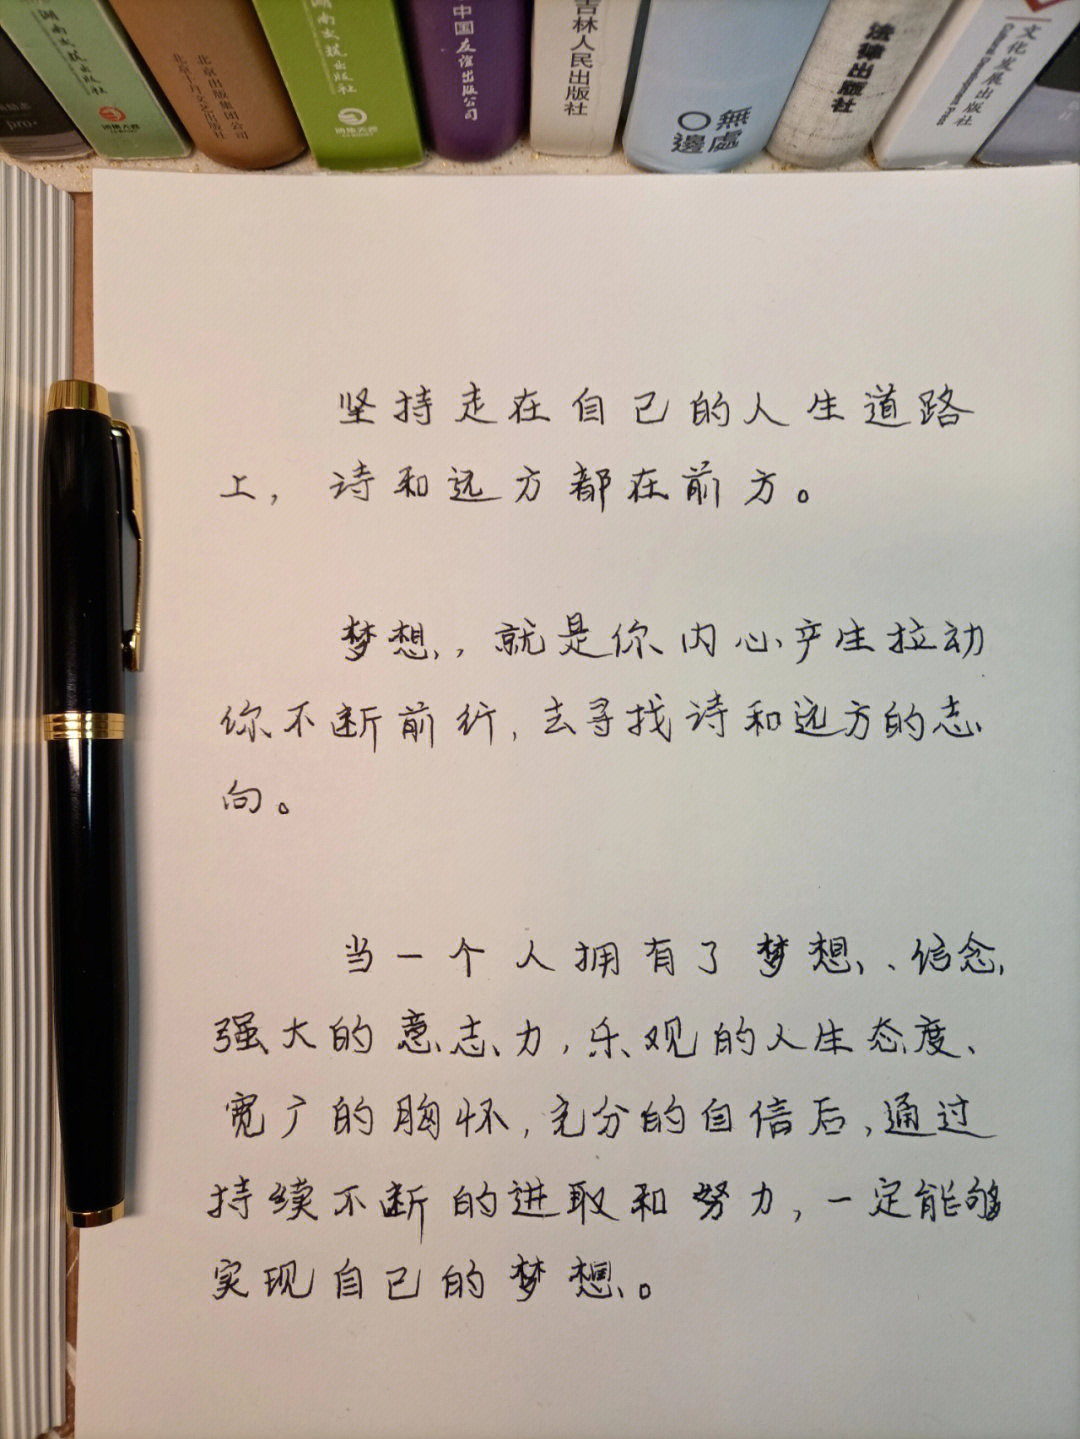 pro·
湖南文艺出版社
北京出版集团公司
北京十月文艺出版社
湖南文艺出版社
中国友谊出版公司
吉林人民出版社
無處
〇邊
法律出版社
文化发展出版社
坚持走在自己的人生道路
上，诗和远方都在前方。
梦想，就是你内心产生拉动
你不断前行，去寻找诗和远方的志
向。
当一个人拥有了梦想、信念，
强大的意志力，乐观的人生态度、
宽广的胸怀，充分的自信后，通过
持续不断的进取和努力，一定能够
实现自己的梦想。